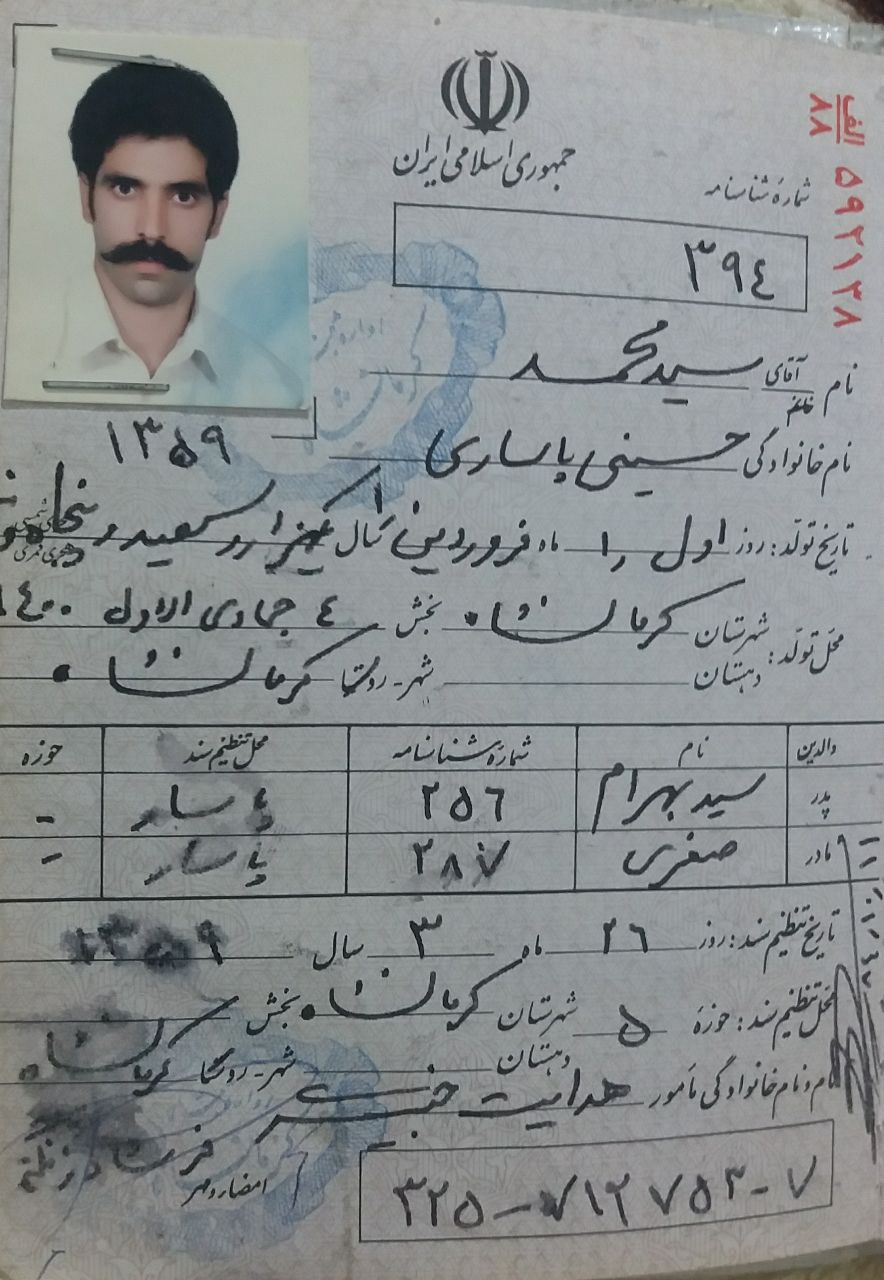 جمهوری اسلامی ایران
الف ۸۸ ۵۹۲۱۳۸
شماره شناسنامه
۳۹٤
نام آقای خانم سید محمد
نام خانوادگی حسینی پاساری
۱۳۵۹
تاریخ تولد: روز اول را ماه فروردین سال یکهزار و سیصد و پنجاه و
محل تولد: شهرستان کرمانشاه بخش ٤ جمادی الاول ۱٤۰۰
دهستان شهر - روستا کرمانشاه
والدین نام شماره شناسنامه محل تنظیم سند حوزه
پدر سید بهرام ۲۵٦ پاسار -
مادر صغری ۲۸۷ پاسار -
تاریخ تنظیم سند: روز ۲٦ ماه ۳ سال ۱۳۵۹
محل تنظیم سند: حوزه ۵ شهرستان کرمانشاه بخش
دهستان شهر - روستا کرمانشاه
نام و نام خانوادگی مأمور هدایت
امضاء و مهر
۳۲۵-۷۱۲۷۵۳-۷